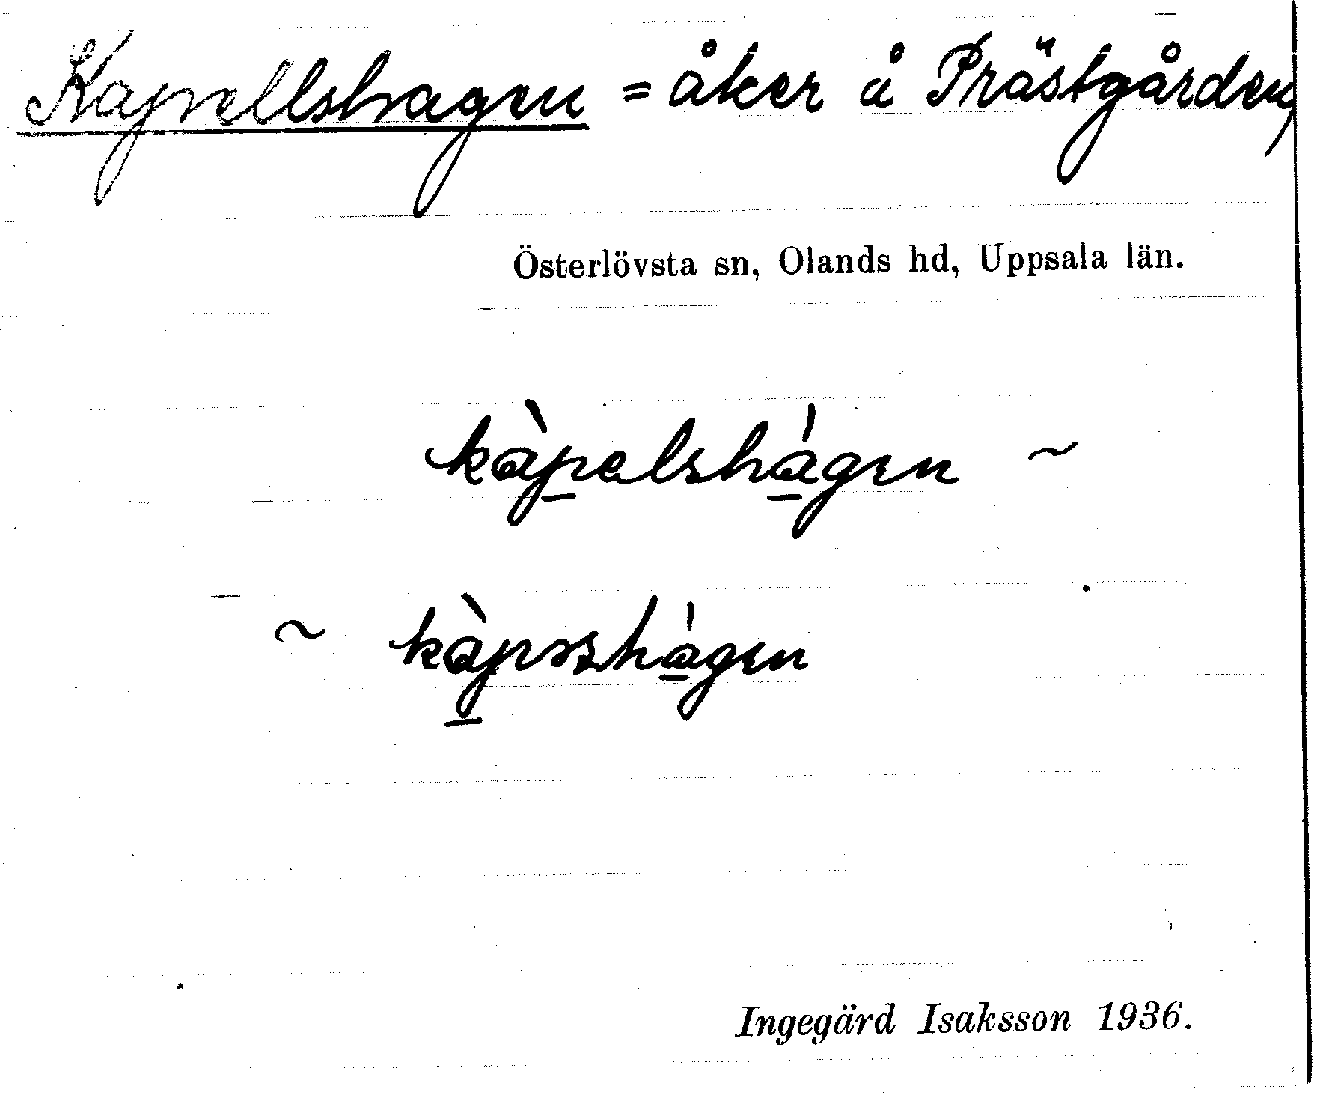 Kapellshagen = åker å Prästgården,
Österlövsta sn, Olands hd, Uppsala län.
kàpelshágen ~
~
Ingegärd Isaksson 1936.